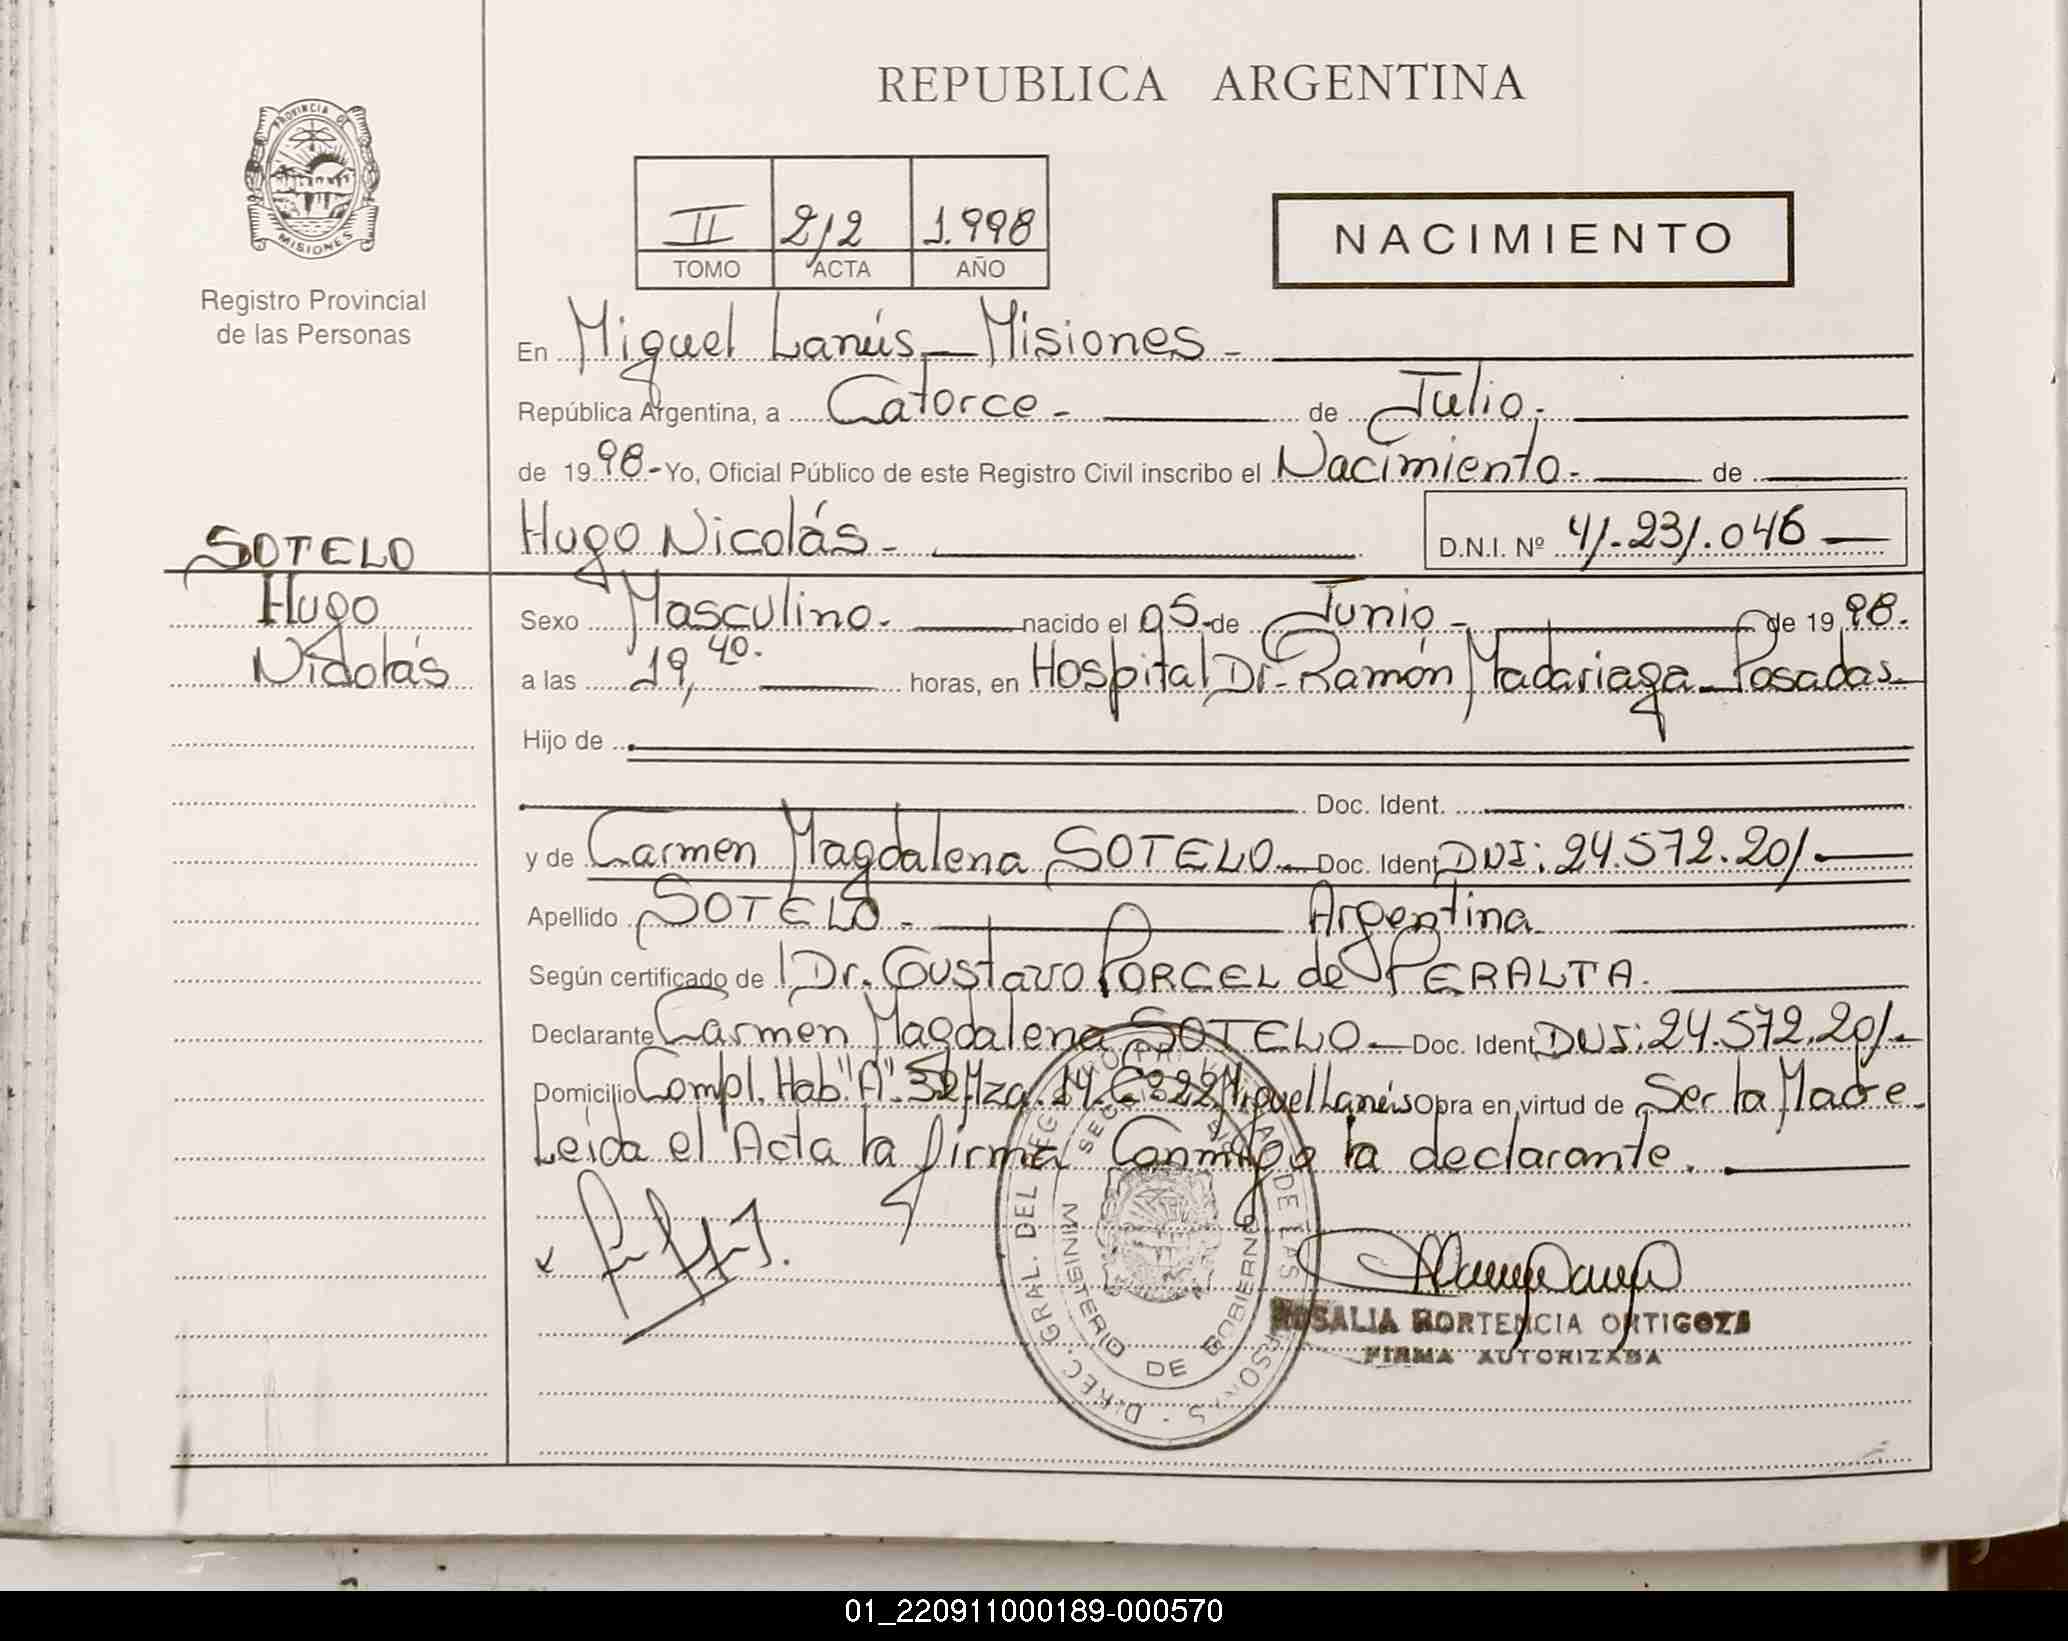 REPUBLICA ARGENTINA
PROVINCIA DE
MISIONES
Registro Provincial
de las Personas
II 212 1.998
TOMO ACTA AÑO
NACIMIENTO
En Miguel Lanús - Misiones -
República Argentina, a Catorce - de Julio.-
de 1998.- Yo, Oficial Público de este Registro Civil inscribo el Nacimiento.- de
SOTELO
Hugo
Nicolás
Hugo Nicolás - D.N.I. Nº 41.231.046
Sexo Masculino.- nacido el 05 de Junio - de 1998.
a las 19,40. horas, en Hospital Dr. Ramón Madariaga - Posadas.
Hijo de
Doc. Ident.
y de Carmen Magdalena SOTELO.- Doc. Ident DNI: 24.572.201.-
Apellido SOTELO - Argentina
Según certificado de Dr. Gustavo PORCEL de PERALTA.
Declarante Carmen Magdalena SOTELO.- Doc. Ident DNI: 24.572.201.-
Domicilio Compl. Hab "A". 32 Mza. 14. C= 322 Miguel Lanús Obra en virtud de Ser la Madre.
Leída el Acta la firma Conmigo la declarante.
DIREC. GRAL. DEL REG DE LAS PERSONAS
MINISTERIO DE GOBIERNO
ROSALIA HORTENCIA ORTIGOZA
FIRMA AUTORIZADA
01_220911000189-000570